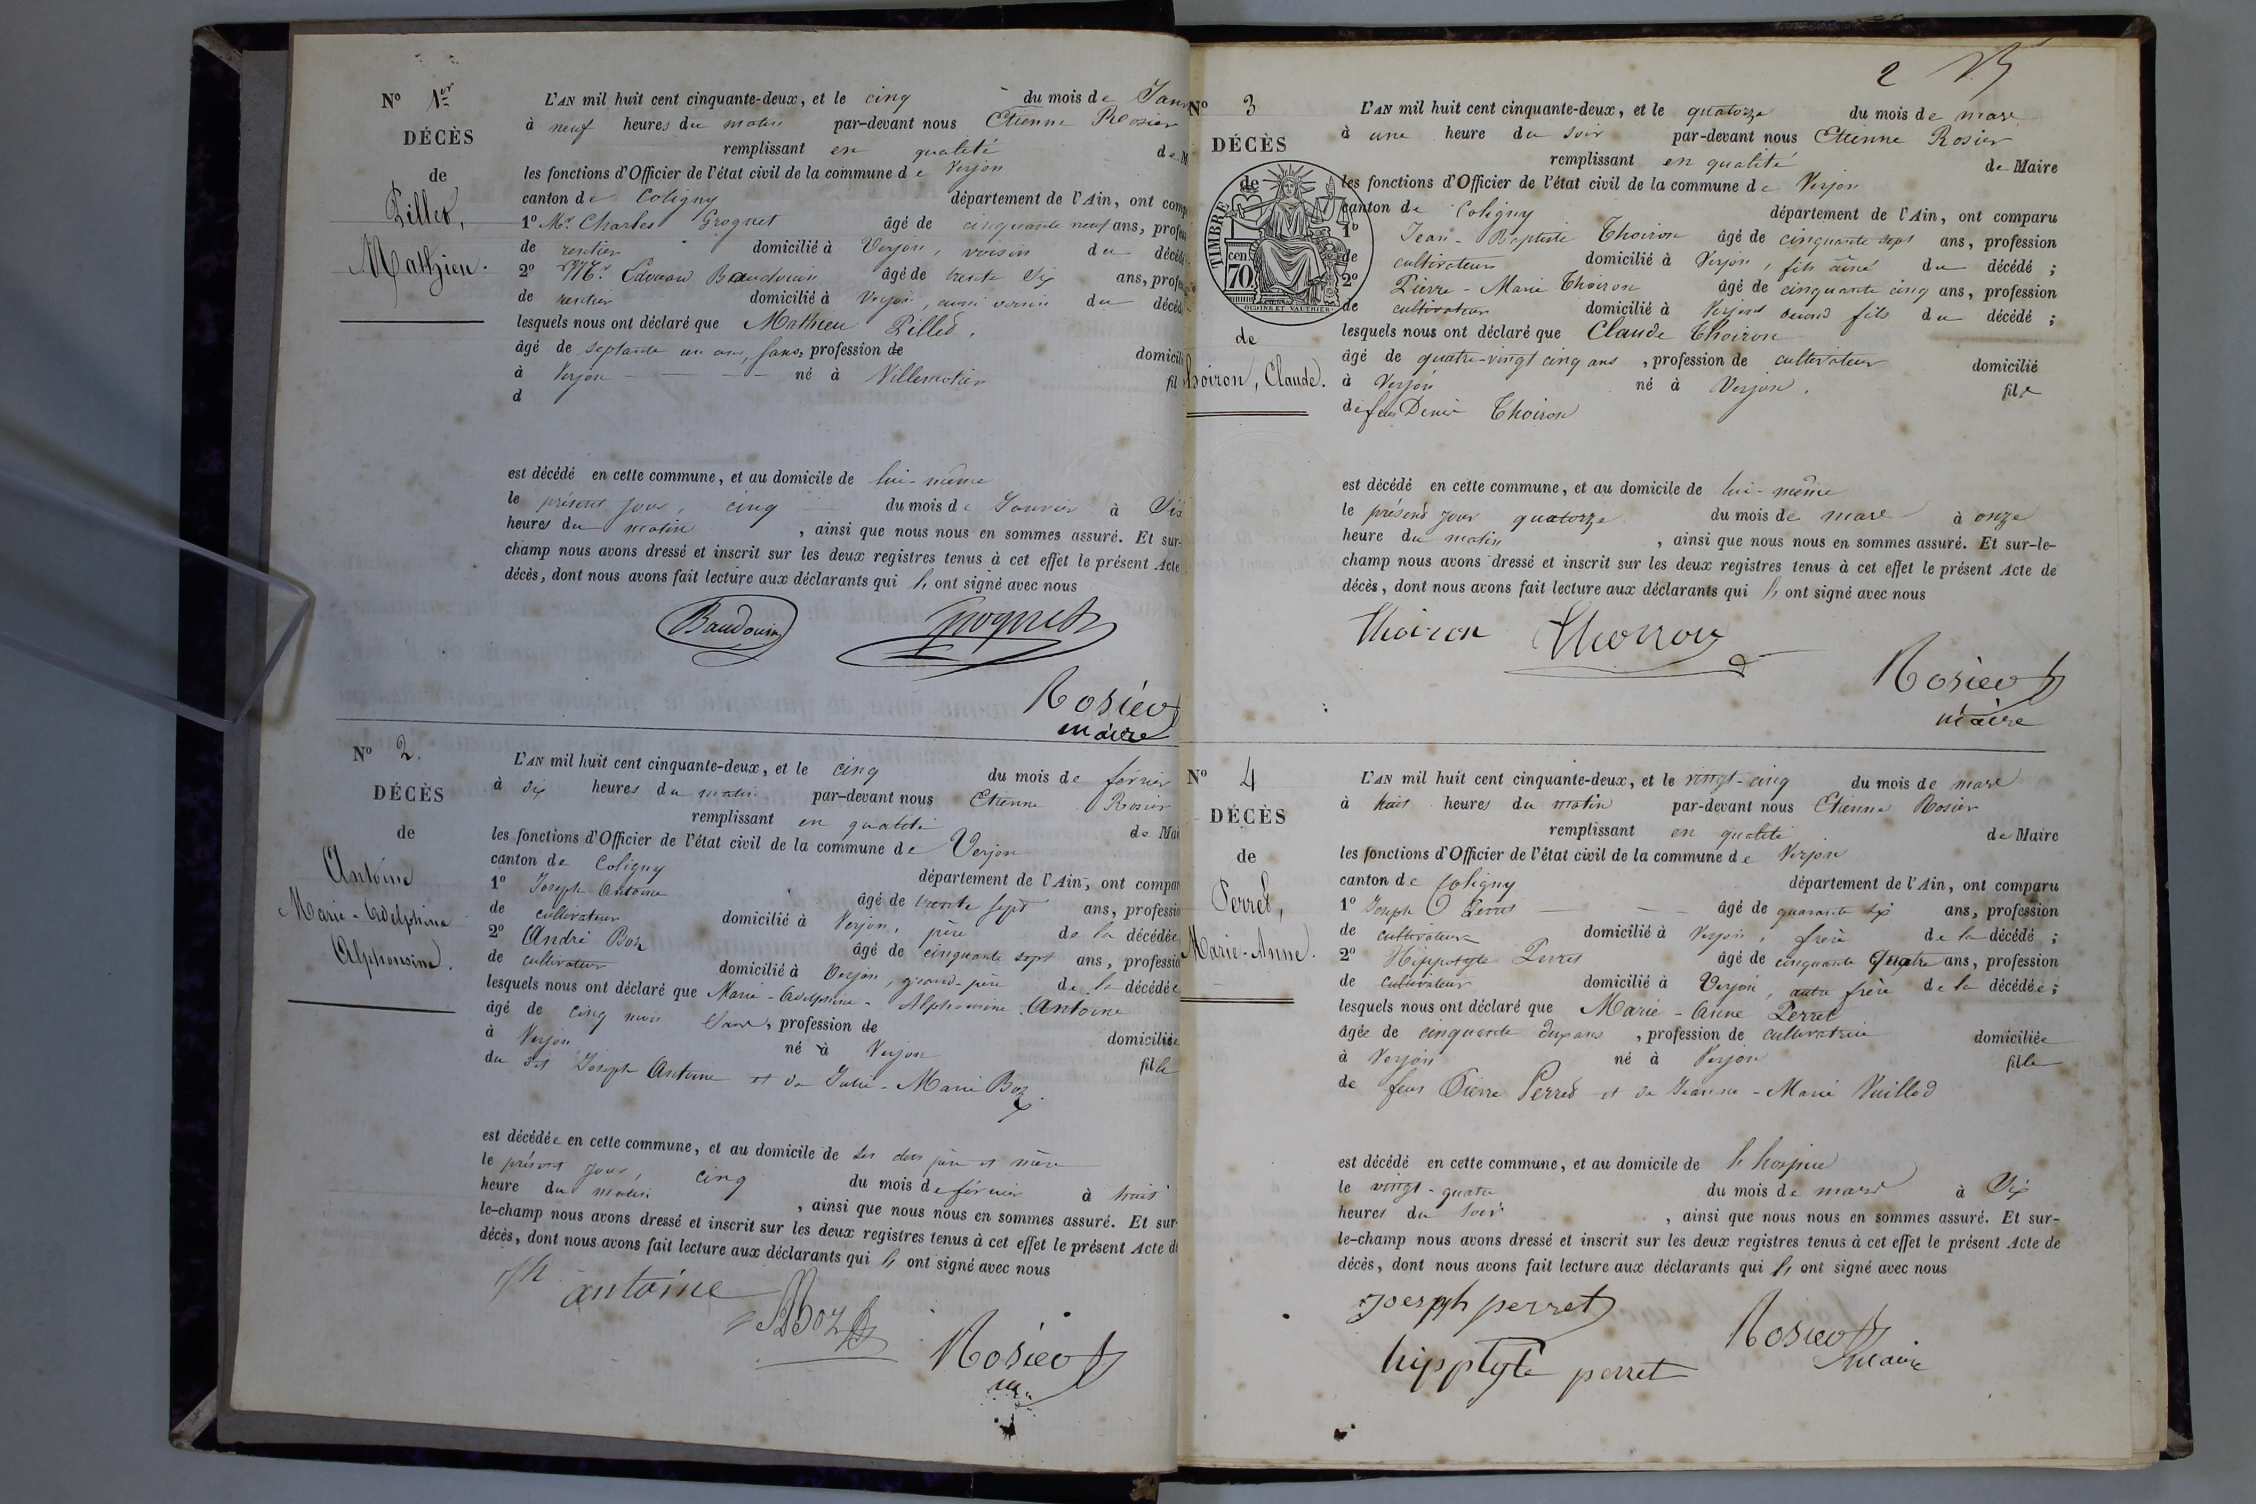 No 1er
DÉCÈS
de
Pillet,
Mathieu.
L'AN mil huit cent cinquante-deux, et le cinq du mois de Janv
à neuf heures du matin par-devant nous Etienne Rosier
remplissant en qualité de M
les fonctions d'Officier de l'état civil de la commune de Verjon
canton de Coligny département de l'Ain, ont comp
1o Mr Charles Groguet âgé de cinquante neuf ans, profes
de rentier domicilié à Verjon, voisin du décédé
2o Mr Edouard Baudouin âgé de trente six ans, profes
de rentier domicilié à Verjon, aussi voisin du décéd
lesquels nous ont déclaré que Mathieu Pillet,
âgé de septante un ans, sans, profession de domicili
à Verjon né à Villemotier fil
d
est décédé en cette commune, et au domicile de lui-même
le présent jour, cinq du mois de Janvier à Six
heures du matin, ainsi que nous nous en sommes assuré. Et sur-
champ nous avons dressé et inscrit sur les deux registres tenus à cet effet le présent Acte
décès, dont nous avons fait lecture aux déclarants qui l, ont signé avec nous
Baudouin Groguet
Rosier
maire
No 2.
DÉCÈS
de
Antoine
Marie-Adelphine
Alphonsine.
L'AN mil huit cent cinquante-deux, et le cinq du mois de février
à dix heures du matin par-devant nous Etienne Rosier
remplissant en qualité de Mai
les fonctions d'Officier de l'état civil de la commune de Verjon
canton de Coligny département de l'Ain, ont compar
1o Joseph Antoine âgé de trente sept ans, professio
de cultivateur domicilié à Verjon, père de la décédée
2o André Boz âgé de cinquante sept ans, professio
de cultivateur domicilié à Verjon, grand-père de la décédée
lesquels nous ont déclaré que Marie-Adelphine-Alphonsine Antoine
âgé de cinq mois Sans, profession de domiciliée
à Verjon né à Verjon fille
du dit Joseph Antoine et de Julie-Marie Boz
est décédée en cette commune, et au domicile de ses père et mère
le présent jour, cinq du mois de février à huit
heure du matin, ainsi que nous nous en sommes assuré. Et sur-
le-champ nous avons dressé et inscrit sur les deux registres tenus à cet effet le présent Acte d
décès, dont nous avons fait lecture aux déclarants qui l, ont signé avec nous
antoine
Boz
Rosier
2
No 3
DÉCÈS
de
TIMBRE
cen
70
de
hoiron, Claude.
L'AN mil huit cent cinquante-deux, et le quatorze du mois de mars
à une heure du soir par-devant nous Etienne Rosier
remplissant en qualité de Maire
les fonctions d'Officier de l'état civil de la commune de Verjon
canton de Coligny département de l'Ain, ont comparu
1o Jean-Baptiste Thoiron âgé de cinquante sept ans, profession
de cultivateur domicilié à Verjon, fils aîné du décédé;
2o Pierre-Marie Thoiron âgé de cinquante cinq ans, profession
de cultivateur domicilié à Verjon second fils du décédé;
lesquels nous ont déclaré que Claude Thoiron
âgé de quatre-vingt cinq ans, profession de cultivateur domicilié
à Verjon né à Verjon, fils
de feu Denis Thoiron
est décédé en cette commune, et au domicile de lui-même
le présent jour quatorze du mois de mars à onze
heure du matin, ainsi que nous nous en sommes assuré. Et sur-le-
champ nous avons dressé et inscrit sur les deux registres tenus à cet effet le présent Acte de
décès, dont nous avons fait lecture aux déclarants qui l, ont signé avec nous
thoiron Thoiron
Rosier
maire
No 4
DÉCÈS
de
Perret,
Marie-Anne.
L'AN mil huit cent cinquante-deux, et le vingt-cinq du mois de mars
à huit heures du matin par-devant nous Etienne Rosier
remplissant en qualité de Maire
les fonctions d'Officier de l'état civil de la commune de Verjon
canton de Coligny département de l'Ain, ont comparu
1o Joseph Perret âgé de quarante six ans, profession
de cultivateur domicilié à Verjon, frère de la décédé;
2o Hippolyte Perret âgé de cinquante Quatre ans, profession
de cultivateur domicilié à Verjon, autre frère de la décédée;
lesquels nous ont déclaré que Marie-Anne Perret
âgée de cinquante deux ans, profession de cultivatrice domiciliée
à Verjon né à Verjon fille
de feus Pierre Perret et de Jeanne-Marie Vuillod
est décédé en cette commune, et au domicile de l'hospice
le vingt-quatre du mois de mars à Six
heures du soir, ainsi que nous nous en sommes assuré. Et sur-
le-champ nous avons dressé et inscrit sur les deux registres tenus à cet effet le présent Acte de
décès, dont nous avons fait lecture aux déclarants qui l, ont signé avec nous
joseph perret
hipptyte perret
Rosier
maire